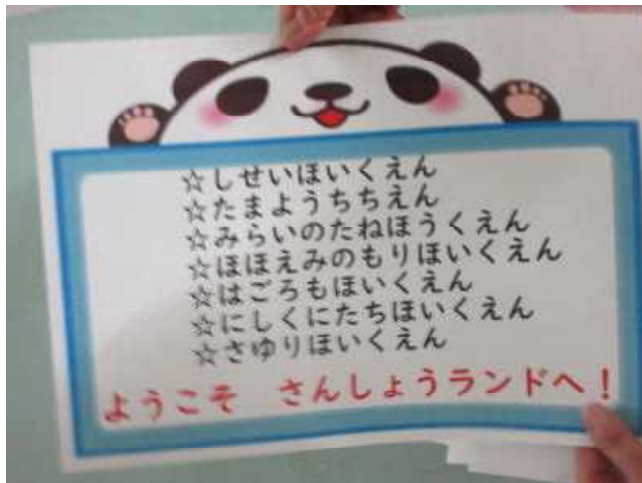 ☆しせいほいくえん
☆たまようちちえん
☆みらいのたねほうくえん
☆ほほえみのもりほいくえん
☆はごろもほいくえん
☆にしくにたちほいくえん
☆さゆりほいくえん
ようこそ　さんしょうランドへ！